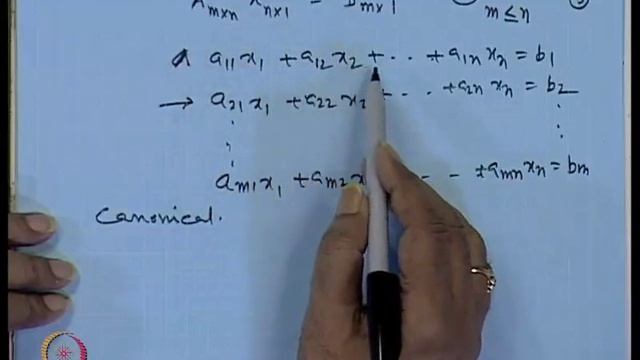 A m×n X n×1 = B m×1 m ≤ n
a11 x1 + a12 x2 + · · + a1n xn = b1
→ a21 x1 + a22 x2 + · · + a2n xn = b2
am1 x1 + am2 x - - + amn xn = bm
Canonical.